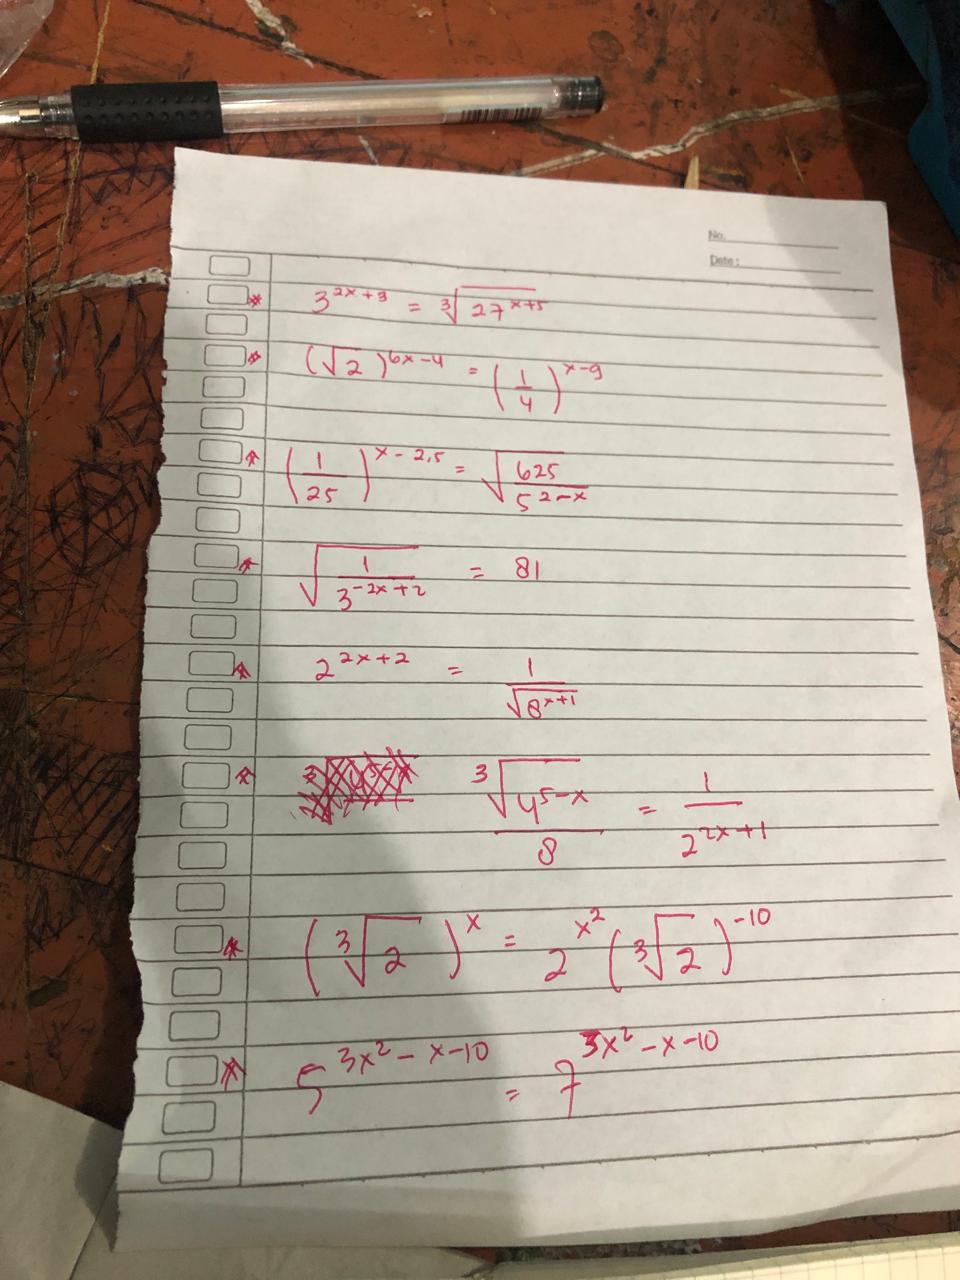 No.
Date:
* 3^{2x+3} = ∛(27^{x+5})
* (√2)^{6x-4} = (1/4)^{x-9}
* (1/25)^{x-2,5} = √(625/5^{2-x})
* √(1/3^{-2x+2}) = 81
* 2^{2x+2} = 1/√(8^{x+1})
* ∛(4^{5-x})/8 = 1/2^{2x+1}
* (∛2)^x = 2^{x²} (∛2)^{-10}
* 5^{3x²-x-10} = 7^{3x²-x-10}